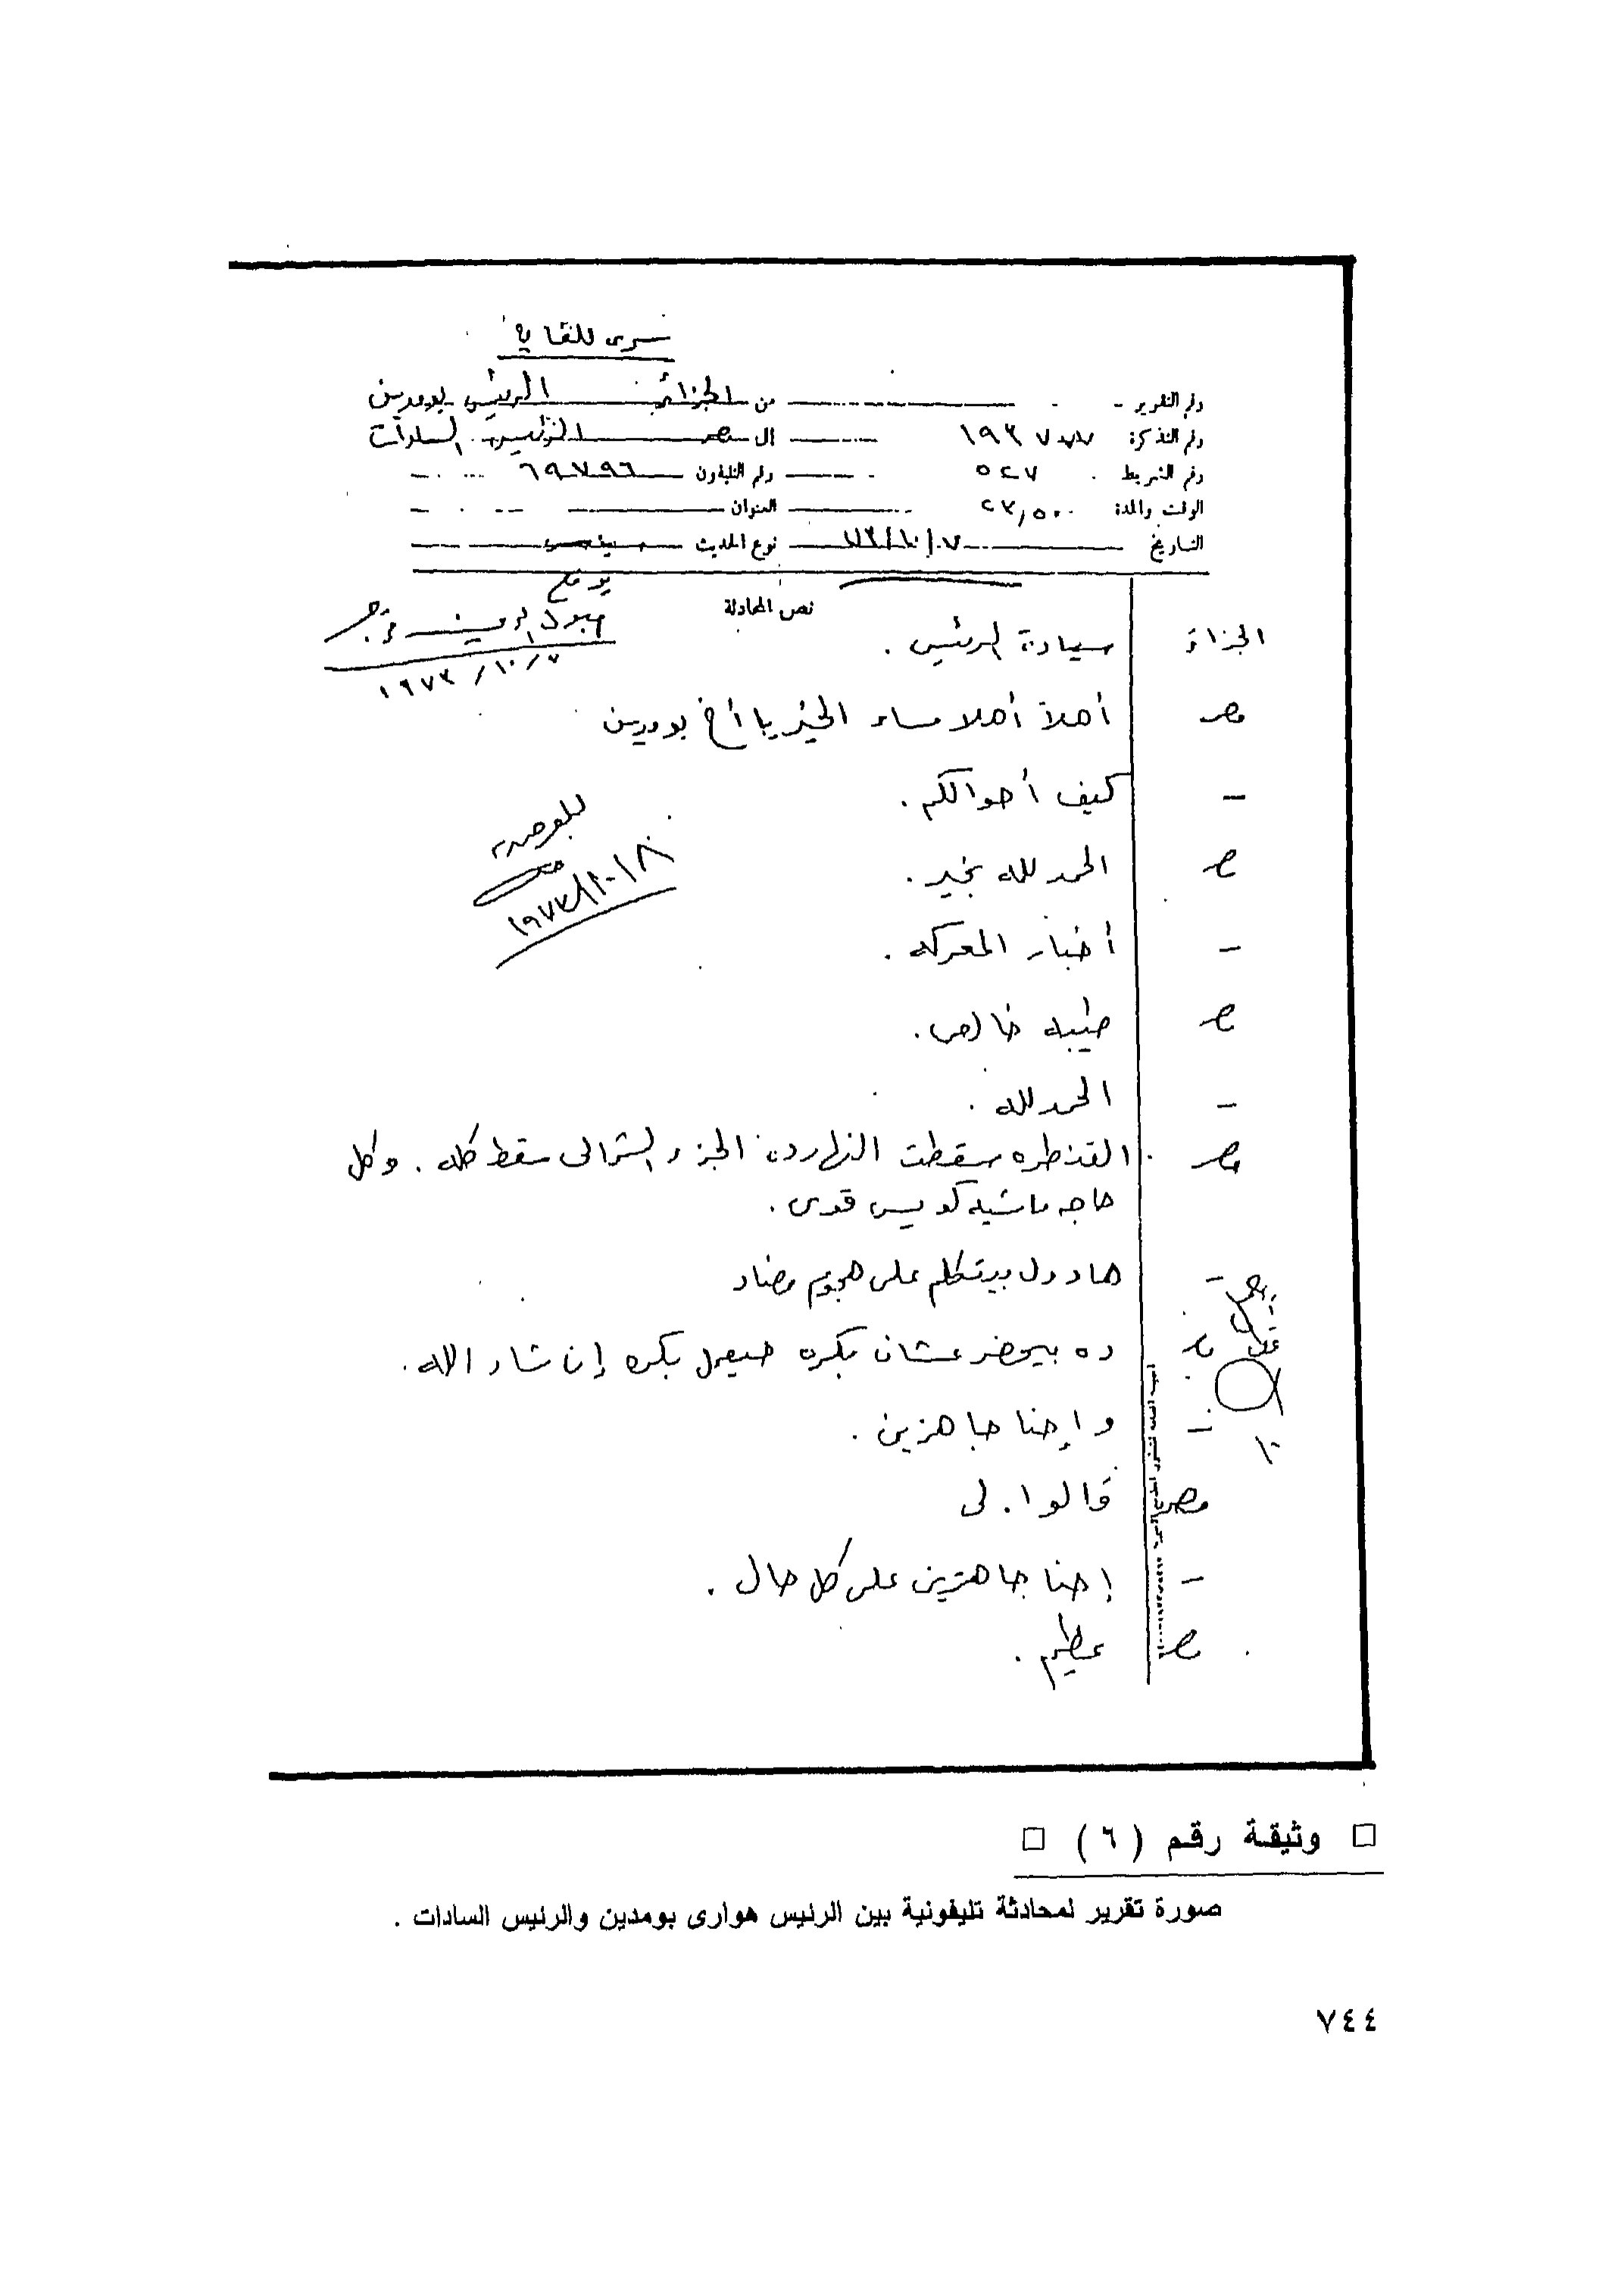 سرى للغاية
رقم التقرير من الجزائر الرئيس بومدين
رقم التذكرة ١٩٣٧٧٧ الى مصر الرئيس السادات
رقم الشريط ٥٢٧ رقم التليفون ٦٩٧٩٦
الوقت والمدة ٢٣,٥٠ العنوان
التاريخ ٧٣/١٠/٧ نوع الحديث
نص المحادثة
١٩٧٣/١٠/٧
الجزائر سيادة الرئيس .
مصر أهلا أهلا مساء الخير يا أخ بومدين
– كيف أحوالكم .
مصر الحمد لله بخير .
– أخبار المعركه .
مصر طيبه خالص .
– الحمد لله .
مصر القنطره سقطت النهارده الجزء الشمالى سقط كله . وكل
حاجه ماشيه كويس قوى .
– هادول بيتكلم على هجوم مضاد
مصر ده بيحضر عشان بكره حيعمل بكره إن شاء الله .
– وإحنا جاهزين .
مصر قالوا . لى
– إحنا جاهزين على كل حال .
مصر عظيم .
للعرض
١٩٧٣/١٠/٨
□ وثيقة رقم ( ٦ ) □
صورة تقرير لمحادثة تليفونية بين الرئيس هوارى بومدين والرئيس السادات .
٧٤٤